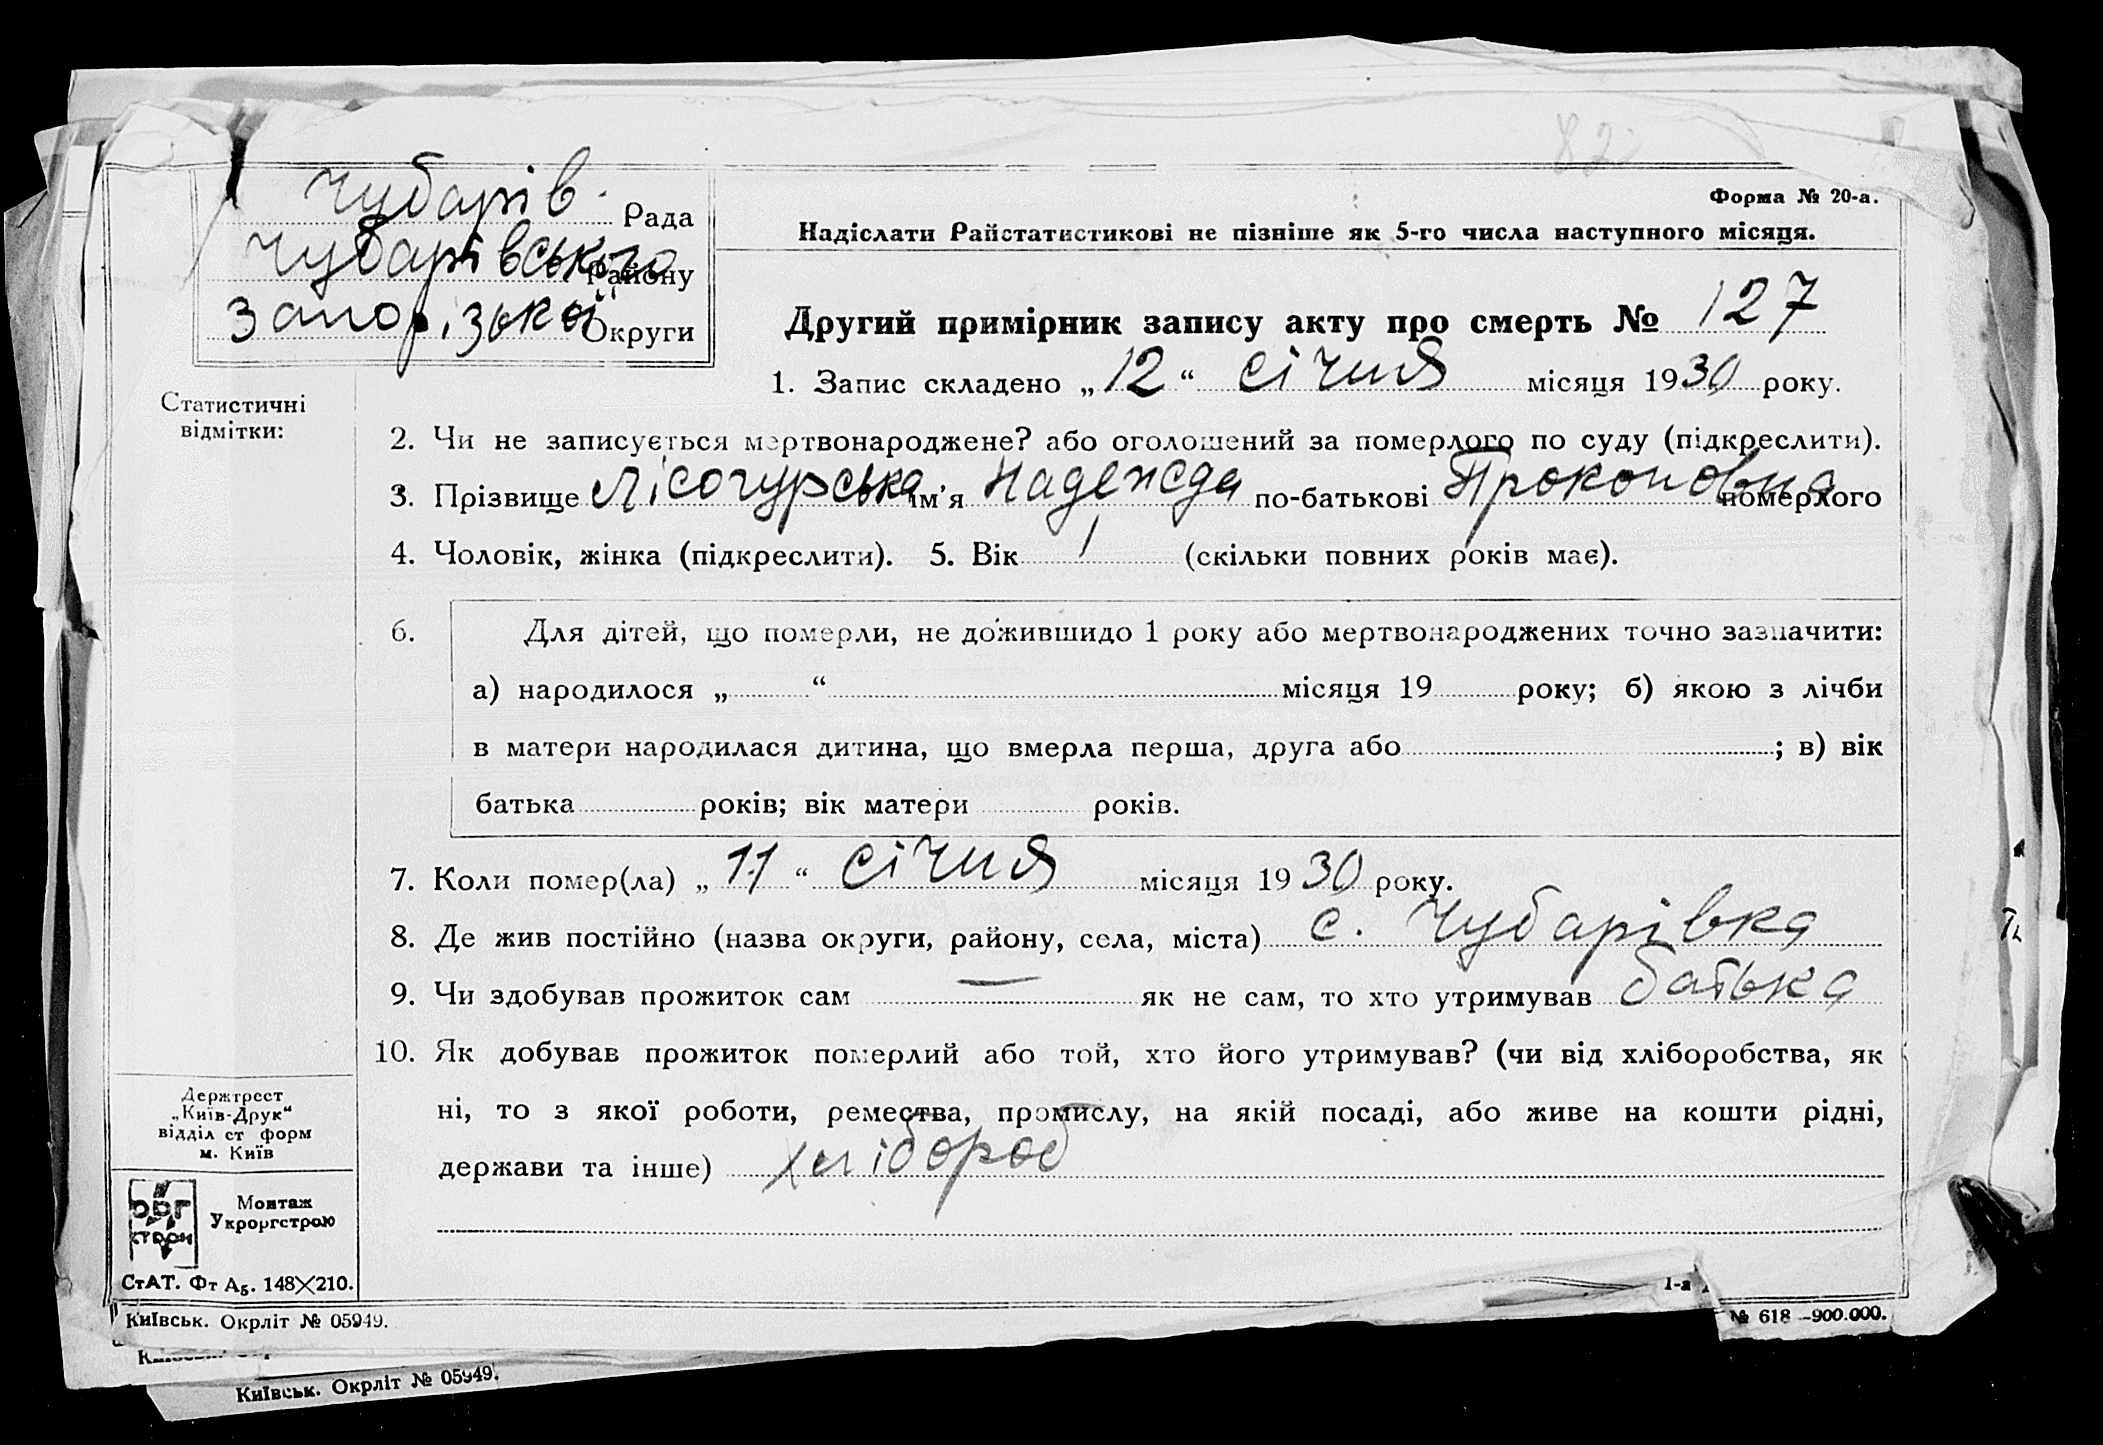 82
Форма № 20-а.
Чубарів. Рада
Надіслати Райстатистикові не пізніше як 5-го числа наступного місяця.
Чубарівського Району
Запорізької Округи
Другий примірник запису акту про смерть № 127
1. Запис складено „12“ січня місяця 1930 року.
Статистичні
відмітки:
2. Чи не записується мертвонароджене? або оголошений за померлого по суду (підкреслити).
3. Прізвище Лісогурська ім’я Надежда по-батькові Прокоповна померлого
4. Чоловік, жінка (підкреслити). 5. Вік 1 (скільки повних років має).
6. Для дітей, що померли, не дожившидо 1 року або мертвонароджених точно зазначити:
а) народилося „ “ місяця 19 року; б) якою з лічби
в матери народилася дитина, що вмерла перша, друга або ; в) вік
батька років; вік матери років.
7. Коли помер(ла) „11“ січня місяця 1930 року.
8. Де жив постійно (назва округи, району, села, міста) с. Чубарівка
9. Чи здобував прожиток сам — як не сам, то хто утримував батька
10. Як добував прожиток померлий або той, хто його утримував? (чи від хліборобства, як
ні, то з якої роботи, ремества, промислу, на якій посаді, або живе на кошти рідні,
держави та інше) хлібороб
Держтрест
„Київ-Друк“
відділ ст форм
м. Київ
ОРГ
СТРОЙ
Монтаж
Укроргстрою
СтАТ. Фт А5. 148×210.
1-а
Київськ. Окрліт № 05949.
№ 618 –900.000.
Київськ. Окрліт № 05949.